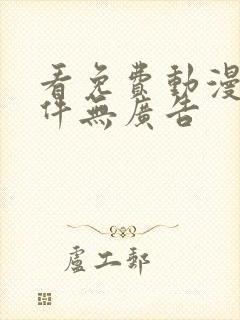 看免費動漫
件無廣告
盧工郵